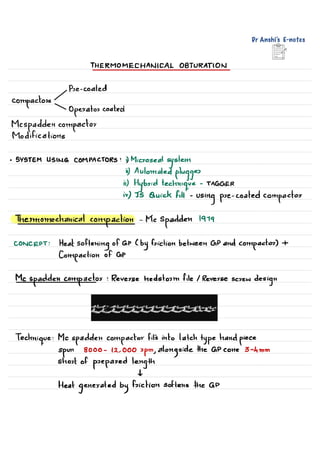 Dr Anshi's E-notes
THERMOMECHANICAL OBTURATION
Pre-coated
Compactors
Operator coated
Mcspadden compactor
Modifications
• SYSTEM USING COMPACTORS: i) Microseal system
ii) Automated plugger
iii) Hybrid technique - TAGGER
iv) JS Quick fill - using pre-coated compactor
Thermomechanical compaction - Mc Spadden 1979
CONCEPT: Heat softening of GP (by friction between GP and compactor) +
Compaction of GP
Mc spadden compactor : Reverse hedstorm file / Reverse screw design
Technique: Mc spadden compactor fits into latch type hand piece
spun 8000- 12,000 rpm, alongside the GP cone 3-4mm
short of prepared length
↓
Heat generated by friction softens the GP